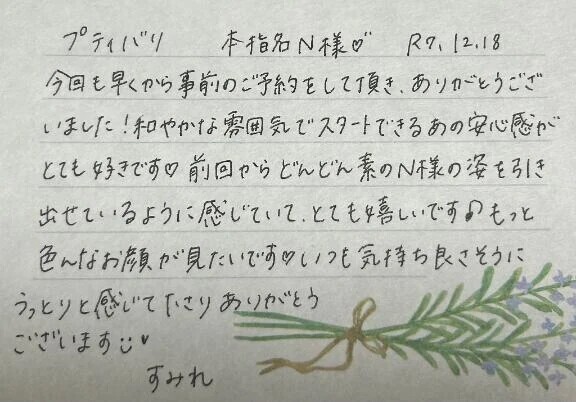 プティバリ 本指名N様♡ R7.12.18
今回も早くから事前のご予約をして頂き、ありがとうござ
いました!和やかな雰囲気でスタートできるあの安心感が
とても好きです♡前回からどんどん素のN様の姿を引き
出せているように感じていて、とても嬉しいです♪もっと
色んなお顔が見たいです♡いつも気持ち良さそうに
うっとりと感じて下さりありがとう
ございます☺♥
すみれ